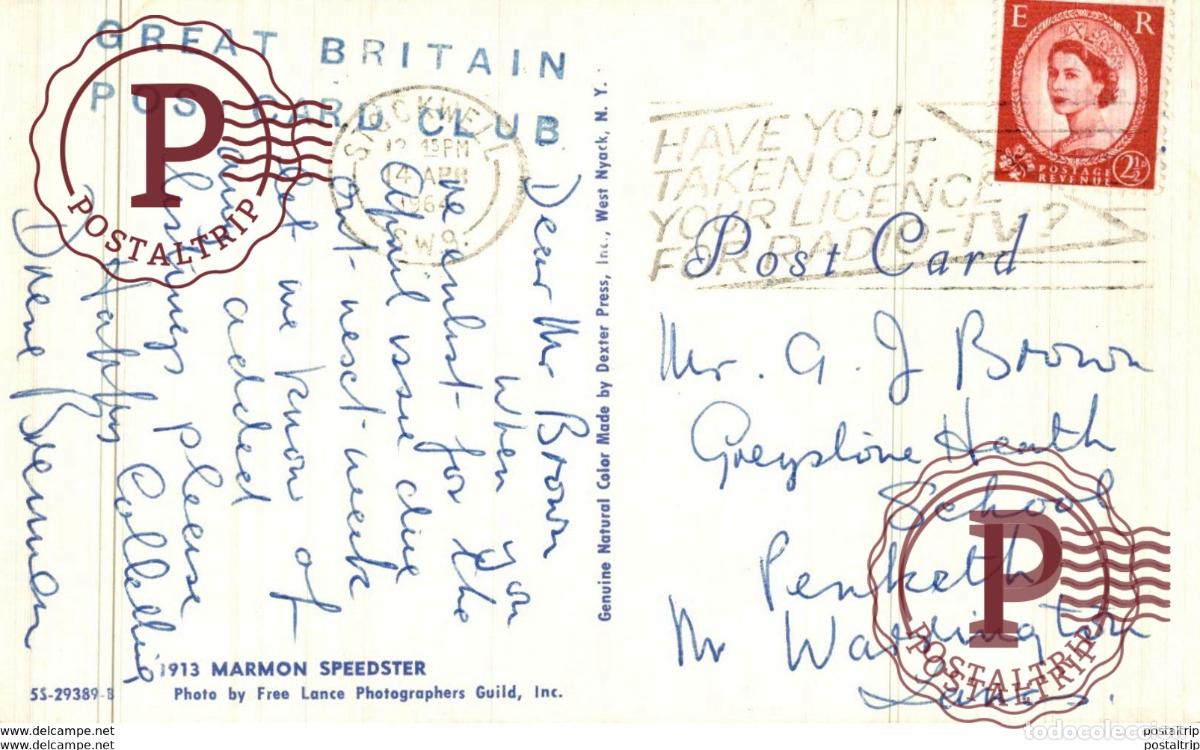 GREAT BRITAIN
POST CARD CLUB
STOCKWELL
12.45PM
14 APR
1964
S.W.9.
HAVE YOU
TAKEN OUT
YOUR LICENCE
FOR RADIO-TV?
E R
POSTAGE
REVENUE
2½D
Post Card
Dear Mr Brown
When you
re enlist for the
April issue due
out next week
let me know of
any added
listings please
Happy Collecting
Drene Brennan
Mr. A. J Brown
Greystone Heath
School
Penketh
Nr Warrington
Lancs.
Genuine Natural Color Made by Dexter Press, Inc., West Nyack, N. Y.
1913 MARMON SPEEDSTER
5S-29389-B
Photo by Free Lance Photographers Guild, Inc.
P
POSTALTRIP
P
POSTALTRIP
POSTALTRIP
todocoleccion
www.todocoleccion.net
www.todocoleccion.net
postaltrip
postaltrip